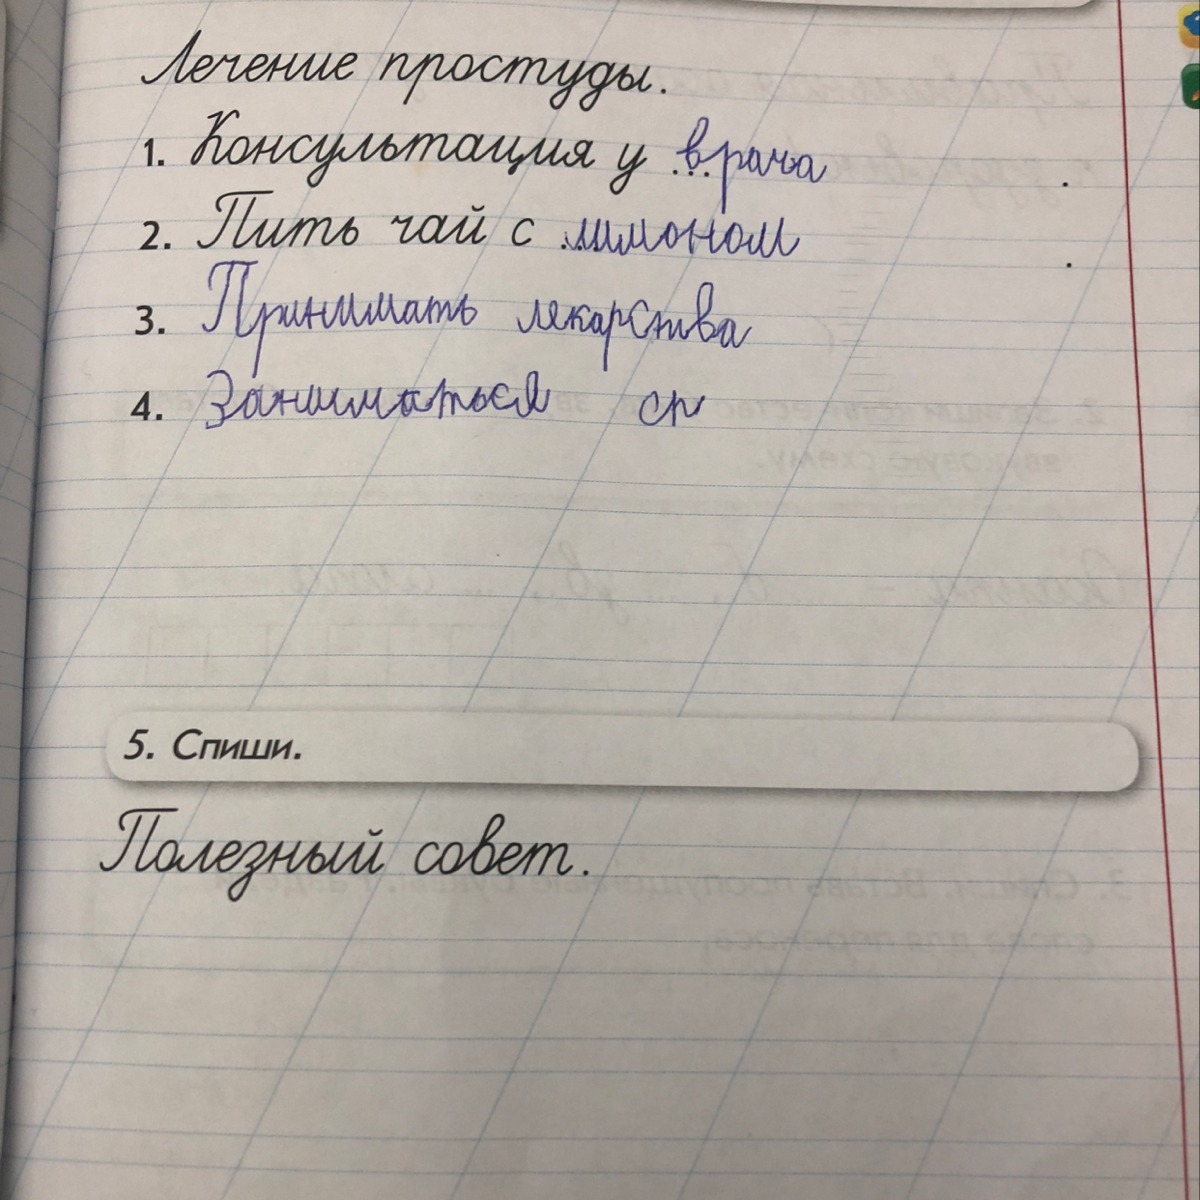 Лечение простуды.
1. Консультация у ...врача .
2. Пить чай с ...лимоном .
3. Принимать лекарства
4. Заниматься сп
5. Спиши.
Полезный совет.